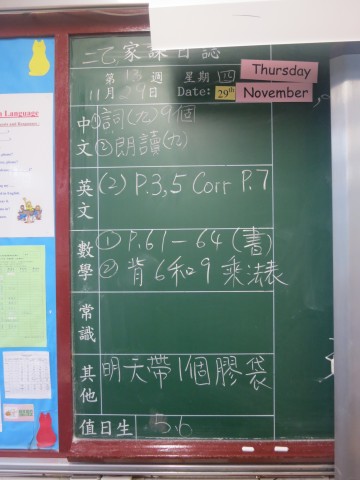 二乙家課日誌
第13週 星期四 Thursday
11月29日 Date: 29th November
中文 ①詞(九)9個
②朗讀(九)
英文 (2) P.3,5 Corr P.7
數學 ① P.61-64(書)
② 背6和9乘法表
常識
其他 明天帶1個膠袋
值日生 5,6
Language